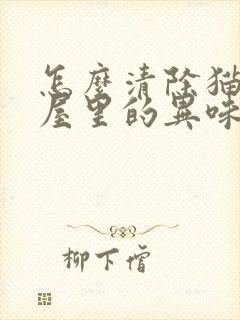 怎麼清除猫
屋里的異味
柳下僧